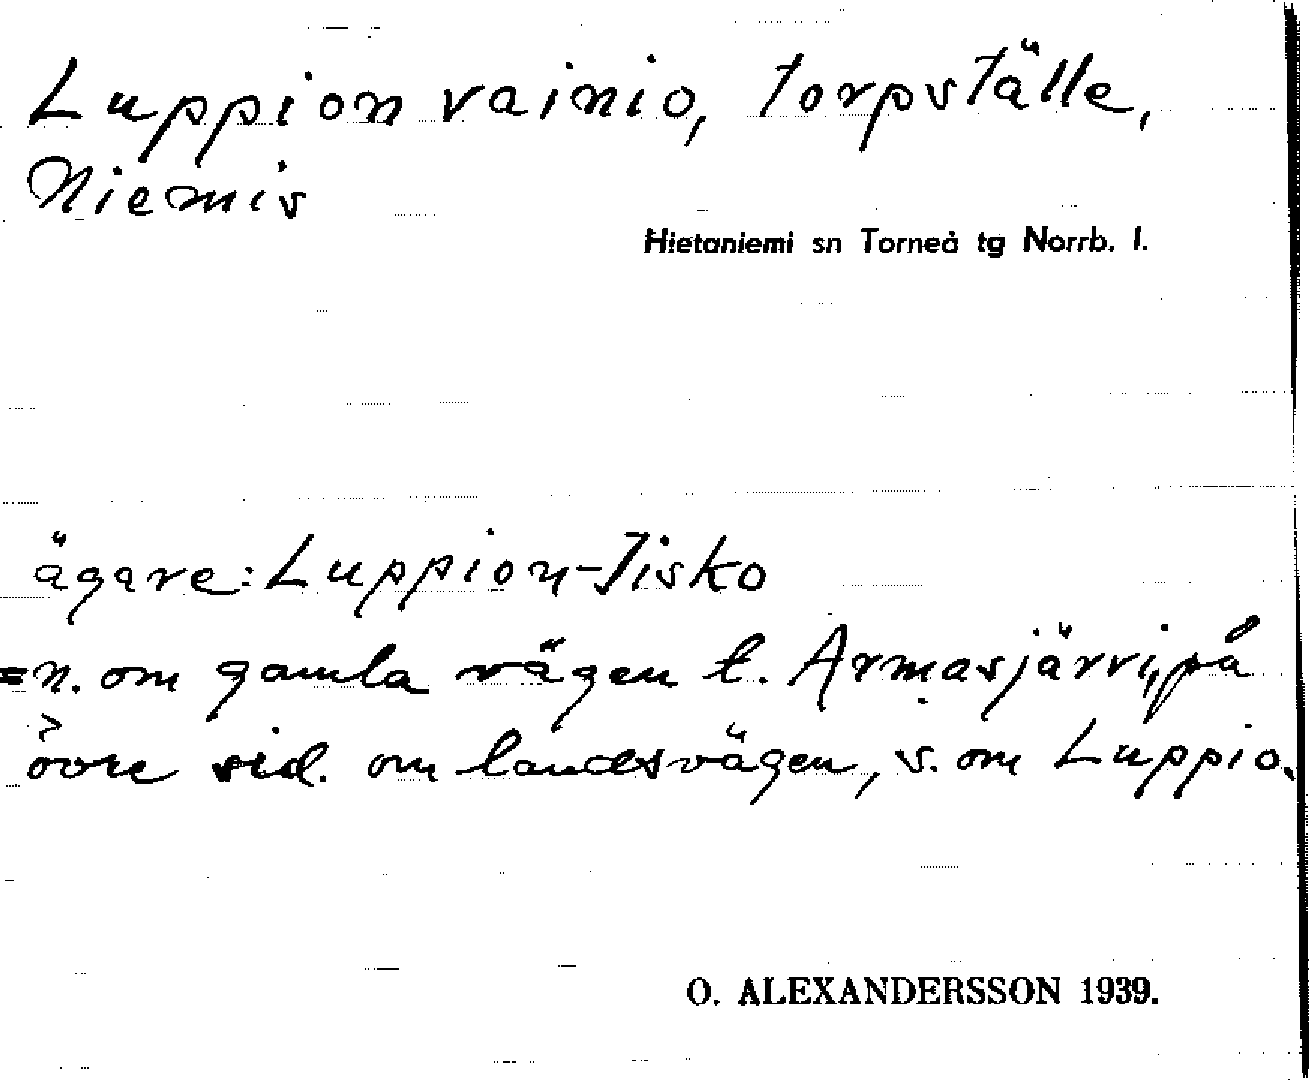 Luppion vainio, torpställe,
Niemis
Hietaniemi sn Torneå tg Norrb. l.
ägare: Luppion-Jisko
=n. om gamla vägen t. Armasjärvi, på
övre sid. om landsvägen, s. om Luppio.
O. ALEXANDERSSON 1939.